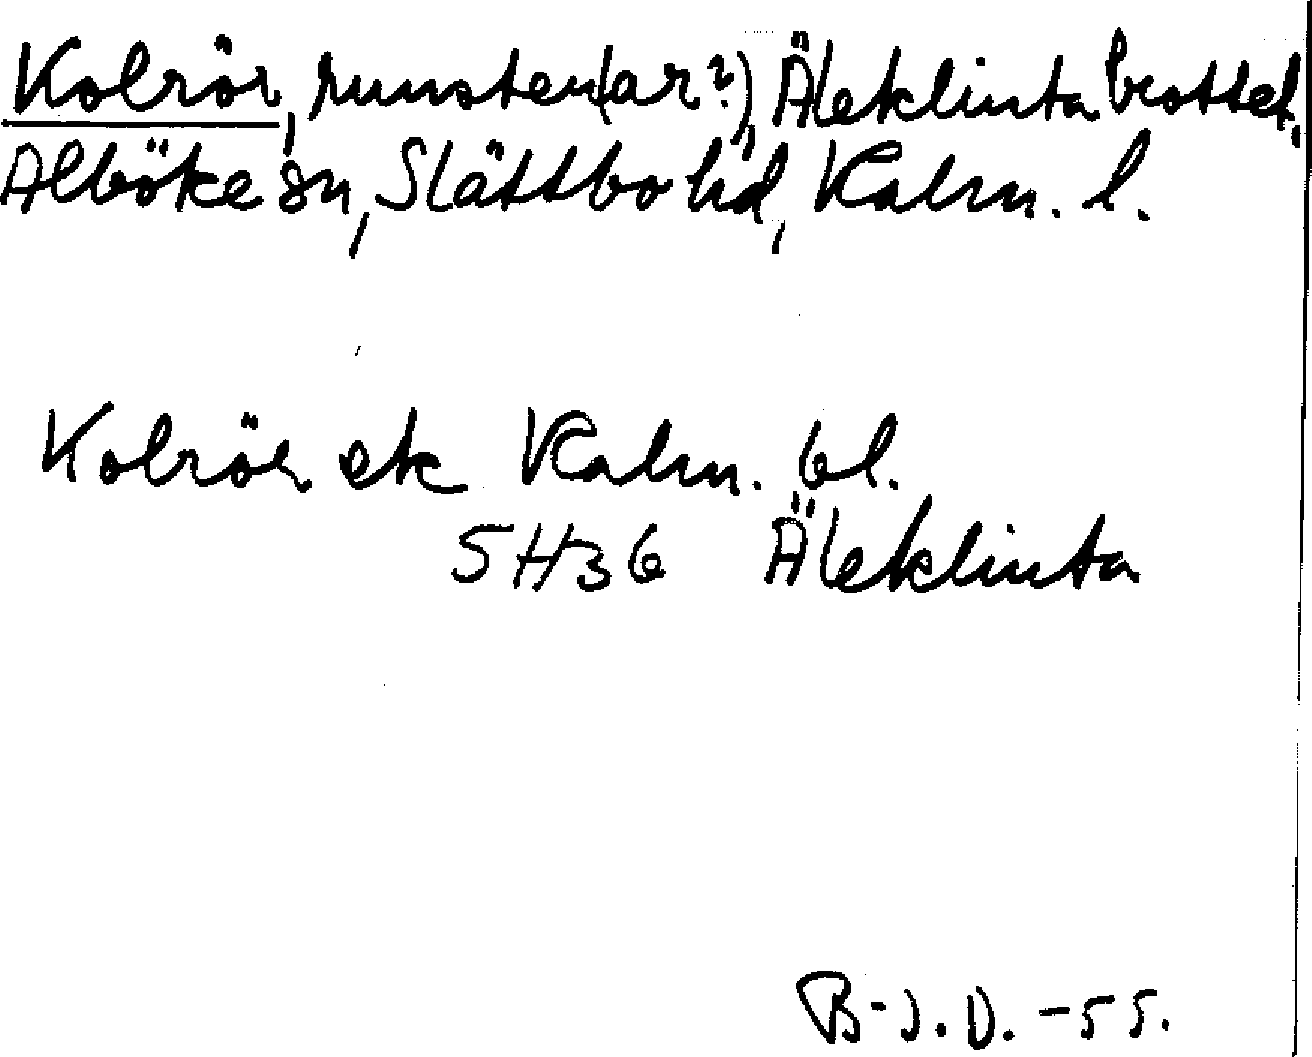 Kolrör, runsten(ar?), Äleklinta brottet,
Alböke sn, Slättbo hd, Kalm. l.
Kolrör ek Kalm. 6l.
5H36 Äleklinta
B-J.D. -55.